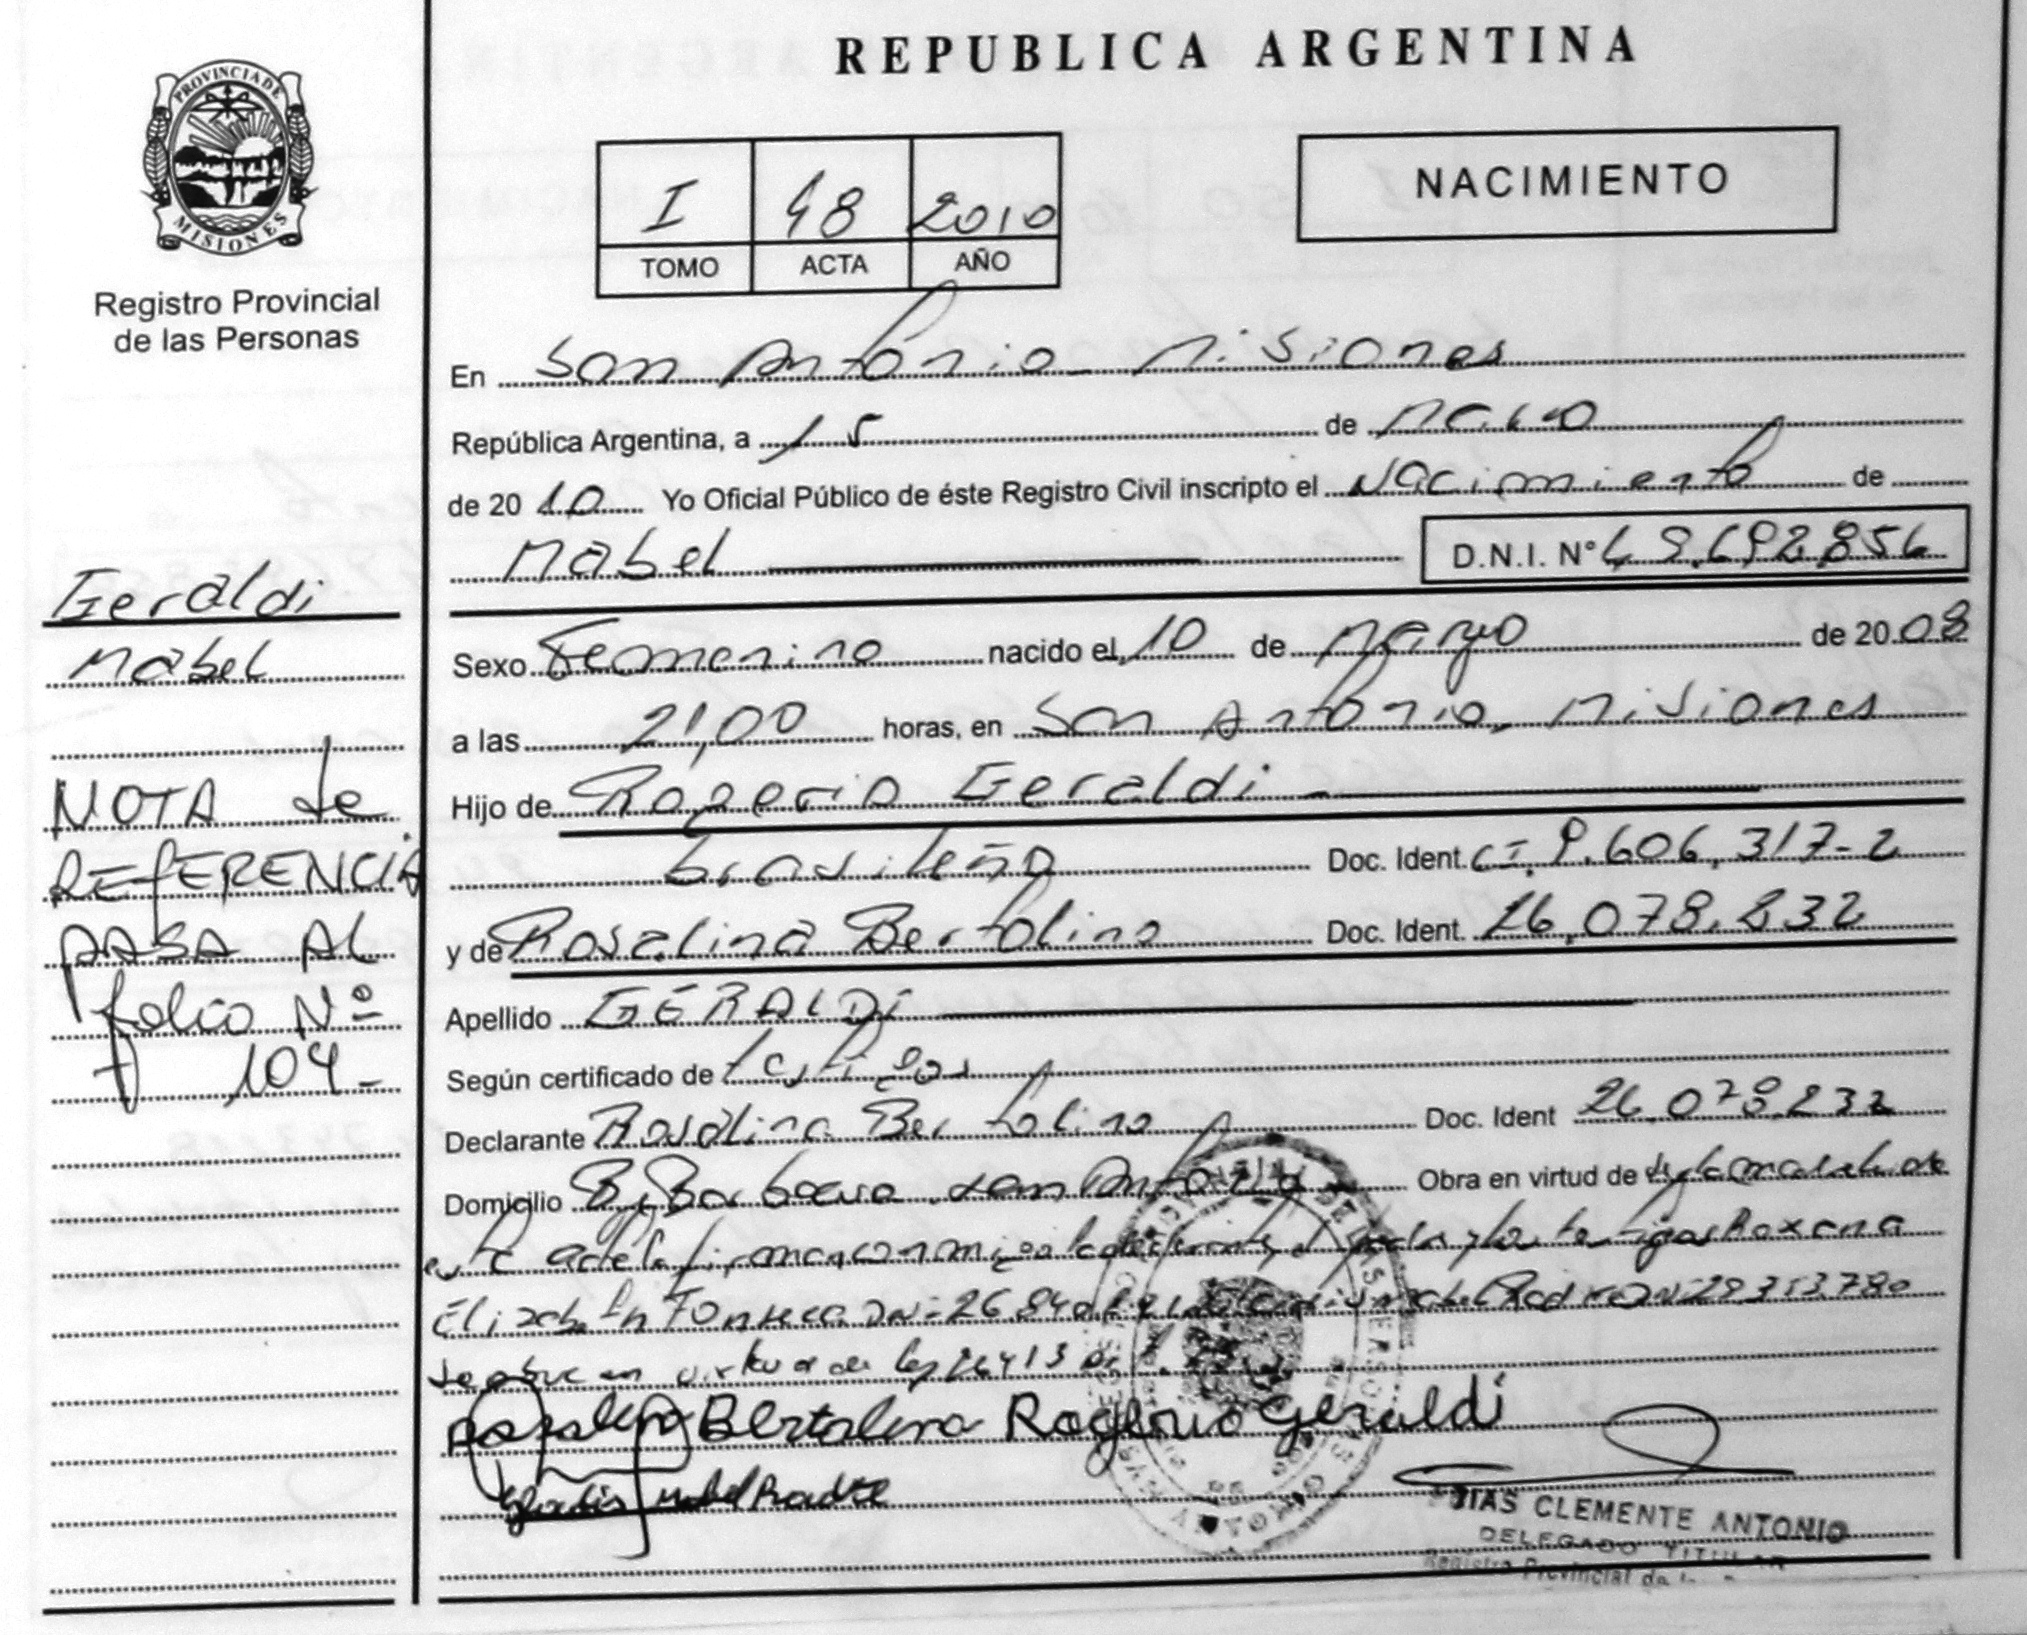 REPUBLICA ARGENTINA
PROVINCIA DE
MISIONES
Registro Provincial
de las Personas
I 48 2010
TOMO ACTA AÑO
NACIMIENTO
En San Antonio - Misiones
República Argentina, a 15 de
de 20 10 Yo Oficial Público de éste Registro Civil inscripto el Nacimiento de
Mabel D.N.I. Nº 49.692.856
Geraldi
Mabel
NOTA de
REFERENCIA
PASA AL
folio Nº
104-
Sexo Femenino nacido el 10 de Marzo de 20 08
a las 21,00 horas, en San Antonio, Misiones
Hijo de Rogerio Geraldi
brasileño Doc. Ident. CI. 9.606.317-2
y de Rosalina Bertolino Doc. Ident. 26.078.232
Apellido GERALDI
Según certificado de testigos
Declarante Rosalina Bertolino Doc. Ident 26.078.232
Domicilio Bº San Antonio Obra en virtud de
este acta firman conmigo la declarante, el padre y los testigos Roxana
Elizabeth Fonseca DNI 29353780
se obre en virtud de ley 26413
Rosalina Bertolino Rogerio Geraldi
Mabel
CLEMENTE ANTONIO
DELEGADO TITULAR
Registro Provincial de